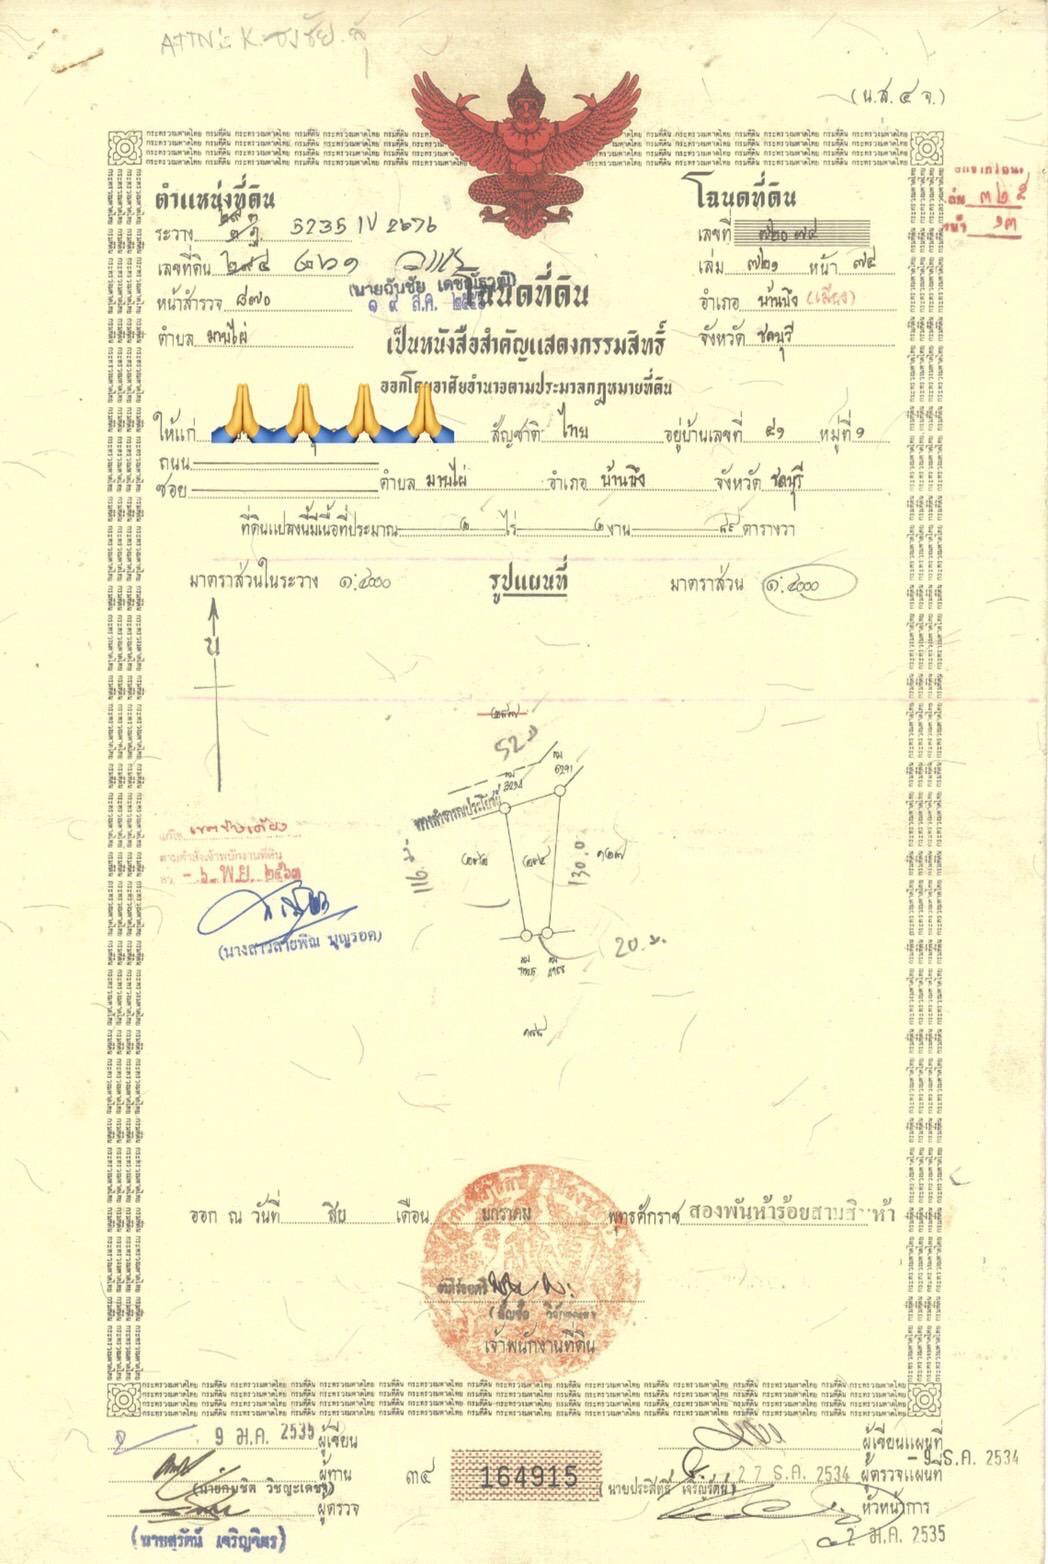 ATTN: K. ธงชัย
(น.ส. ๔ จ.)
ตำแหน่งที่ดิน
ระวาง 5235 IV 2676
เลขที่ดิน ๒๙๔
หน้าสำรวจ ๘๗๐
ตำบล มาบไผ่
โฉนดที่ดิน
เลขที่ ๗๒๐๗๔
เล่ม ๗๒๑ หน้า ๗๔
อำเภอ บ้านบึง (เมือง)
จังหวัด ชลบุรี
๓๒๕
หน้า ๖๓
๑๙ ส.ค.
โฉนดที่ดิน
เป็นหนังสือสำคัญแสดงกรรมสิทธิ์
ออกโดยอาศัยอำนาจตามประมวลกฎหมายที่ดิน
ให้แก่ สัญชาติ ไทย อยู่บ้านเลขที่ ๔๑ หมู่ที่ ๑
ถนน
ซอย ตำบล มาบไผ่ อำเภอ บ้านบึง จังหวัด ชลบุรี
ที่ดินแปลงนี้มีเนื้อที่ประมาณ ๒ ไร่ ๒ งาน ๔๙ ตารางวา
มาตราส่วนในระวาง ๑:๔๐๐๐ รูปแผนที่ มาตราส่วน ๑:๔๐๐๐
น
52 ม
ทางสาธารณประโยชน์
116 ม.
130 ม.
20 ม.
แก้ไข เขตข้างเคียง
ตามคำสั่งเจ้าพนักงานที่ดิน
- ๖ พ.ย. ๒๕๖๓
(นางสาวสายพิณ บุญรอด)
ออก ณ วันที่ สิบ เดือน มกราคม พุทธศักราช สองพันห้าร้อยสามสิบห้า
เจ้าพนักงานที่ดิน
9 ม.ค. 2535 ผู้เขียน
ผู้ทาน
ผู้ตรวจ
(นายสุรัตน์ เจริญจิตร)
๓๔ 164915
ผู้เขียนแผนที่
- 9 ธ.ค. 2534
27 ธ.ค. 2534 ผู้ตรวจแผนที่
(นายประสิทธิ์ เจริญรัตน์)
หัวหน้าการ
2 ม.ค. 2535